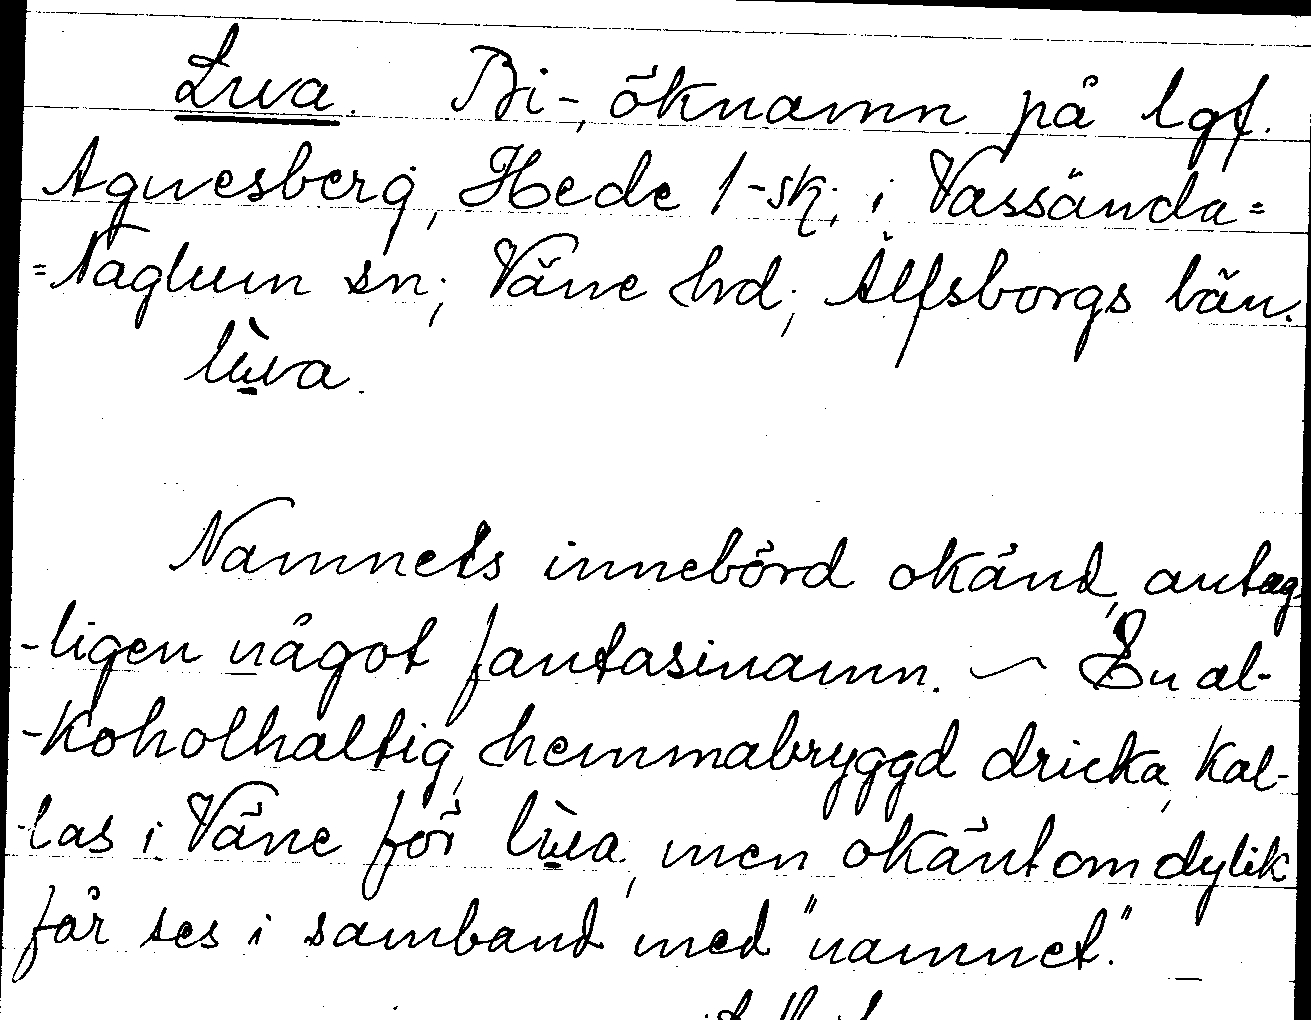 Luva. Bi-, öknamn på lgf.
Agnesberg, Hede 1-sk; i Vassända=
=Naglum sn; Väne hrd; Älfsborgs län.
lùva.
Namnets innebörd okänd, antag-
-ligen något fantasinamn. — En al-
-koholhaltig, hemmabryggd dricka, kal-
-las i Väne för lùva, men okänt om dylik
får ses i samband med "namnet."